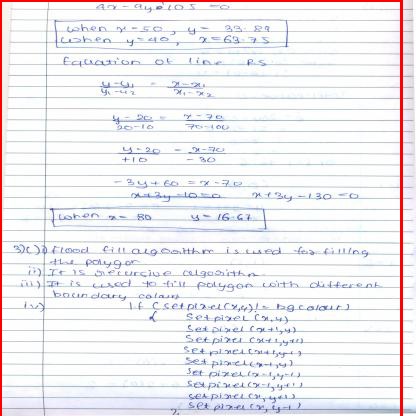 4x-9y+105 =0
when x=50, y= 33.89
when y=40, x=63.75
Equation of line RS
y-y1/y1-y2 = x-x1/x1-x2
y-20/20-10 = x-70/70-100
y-20/+10 = x-70/-30
-3y+60 = x-70
x+3y-10=0 x+3y-130=0
when x= 80 y= 16.67
3)c)i) flood fill algorithm is used for filling
the polygon
ii) It is recursive algorithm.
iii) It is used to fill polygon with different
boundary colour
iv) If (setpixel(x,y)!= bgcolour)
{ Setpixel (x,y)
Setpixel (x+1,y)
Setpixel (x+1,y+1)
Setpixel (x+1,y-1)
Setpixel (x-1,y)
setpixel (x-1,y-1)
setpixel(x-1,y+1)
setpixel (x,y+1)
setpixel (x,y-1